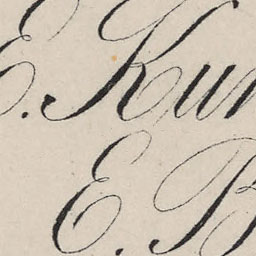 E. Kun
E. B